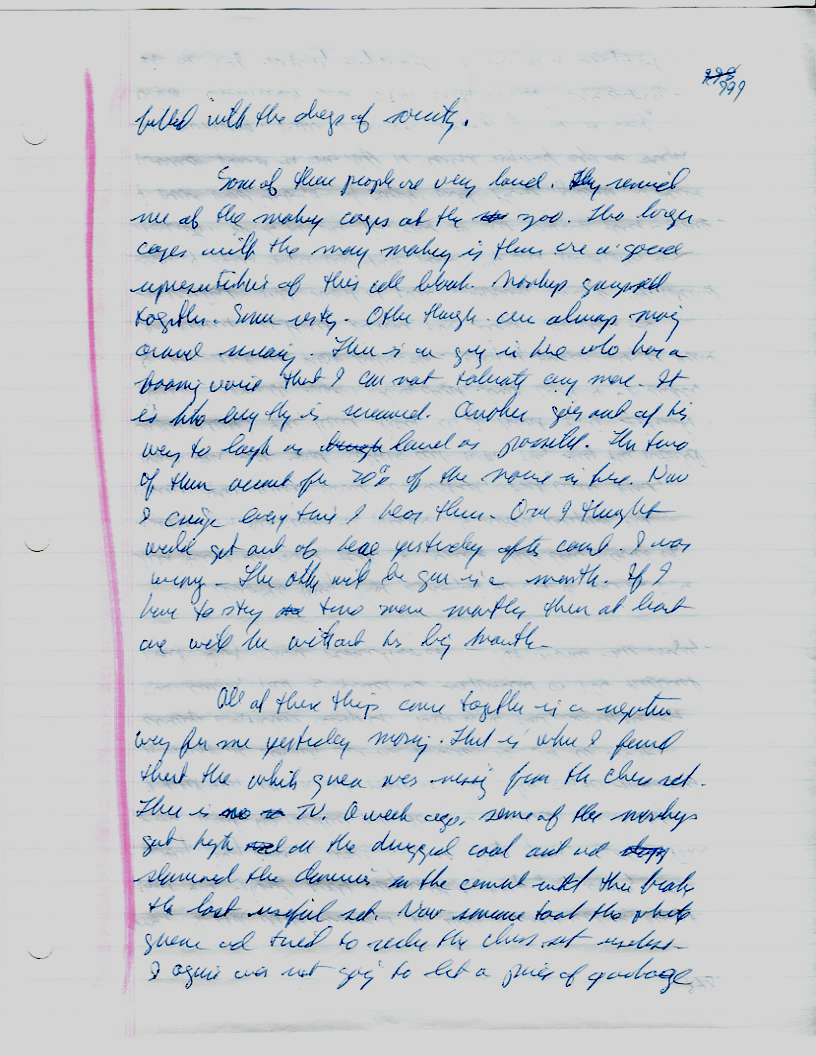 999
filled with the dregs of society.
Some of these people are very loud. They remind
me of the monkey cages at the zoo. The larger
cages with the many monkeys in them are a good
representation of this cell block. Monkeys grouped
together. Some resting. Other though are always moving
around making. There is a guy in here who has a
booming voice that I can not tolerate any more. It
is like every thing is screamed. Another goes out of his
way to laugh as loud as possible. The two
of them account for 70% of the noise in here. Now
I cringe every time I hear them. One I thought
would get out of here yesterday after court. I was
wrong. The other will be gone in a month. If I
have to stay two more months then at least
one will be without his big mouth.
All of these things came together in a negative
way for me yesterday morning. That is when I found
that the white queen was missing from the chess set.
There is TV. A week ago, some of the monkeys
got high on the drugged out and
slammed the dominos on the cement until they broke
the last useful set. Now someone took the white
queen and tried to render the chess set useless.
I again was not going to let a piece of garbage